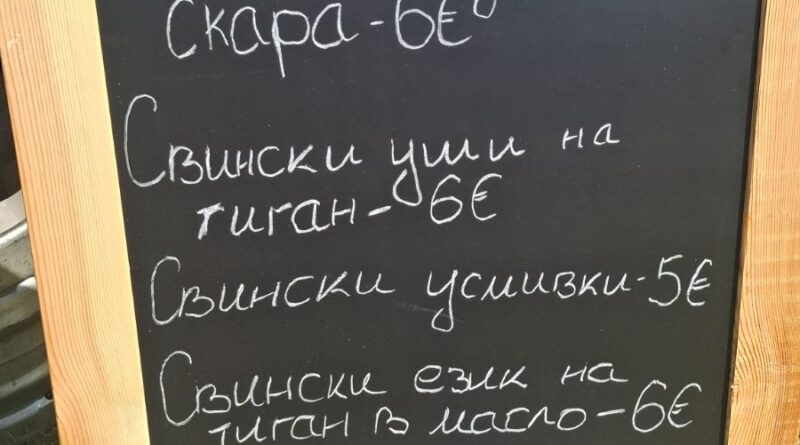 Скара-6€
Свински уши на
тиган- 6€
Свински усмивки-5€
Свински език на
тиган в масло-6€